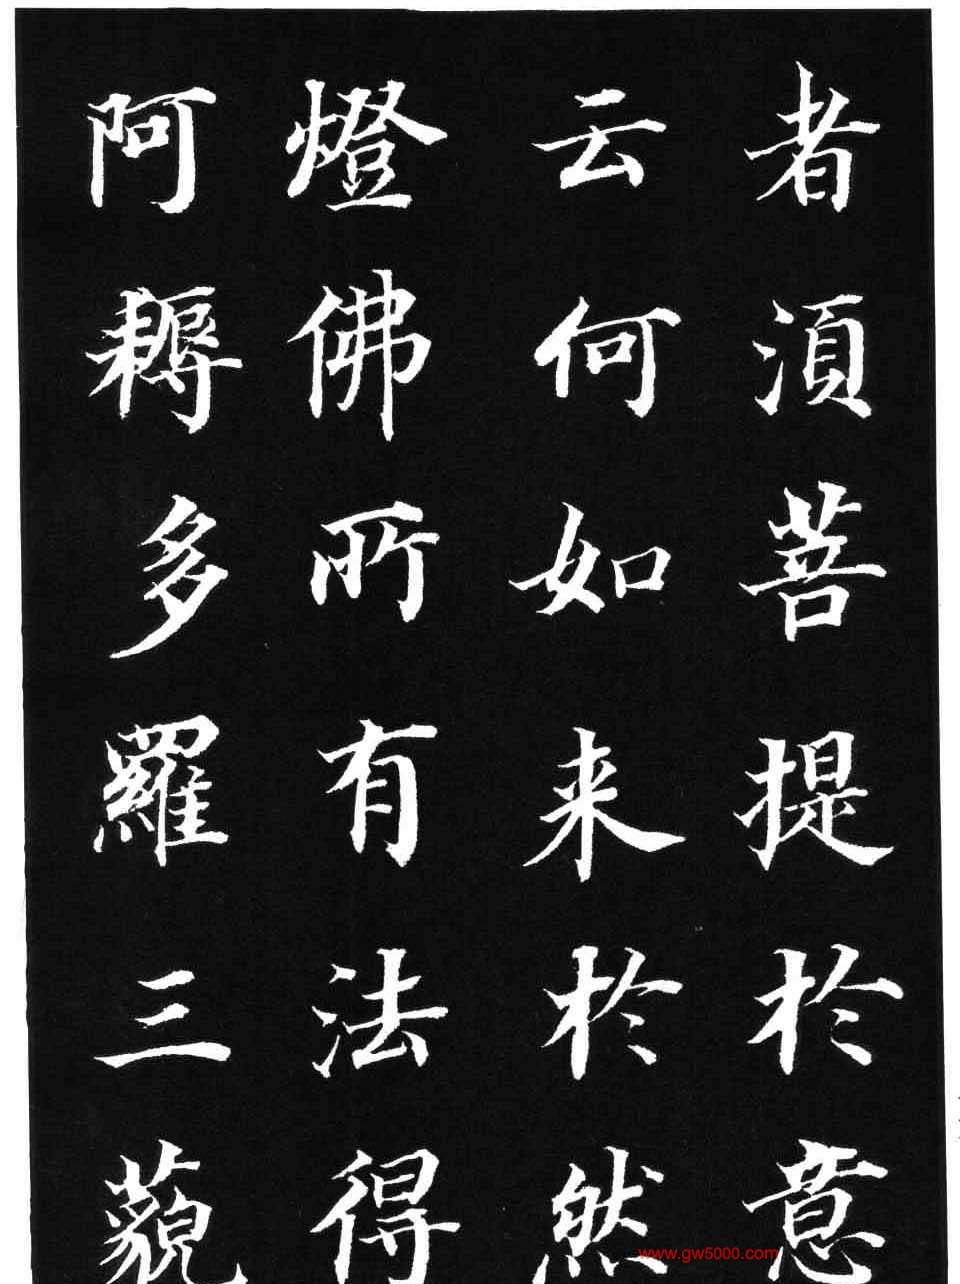 者湏菩提於意
云何如来於然
燈佛所有法得
阿耨多羅三藐
www.gw5000.com